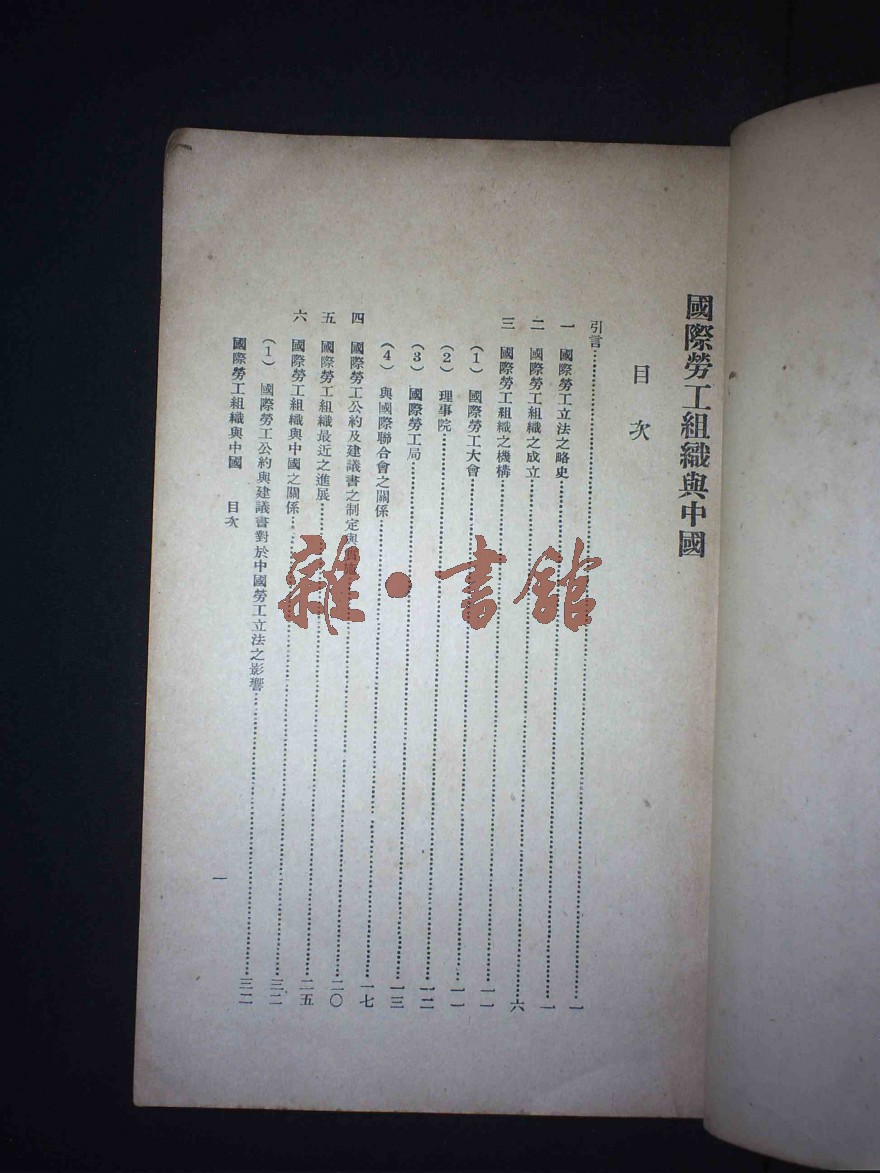 國際勞工組織與中國
目次
引言……一
一 國際勞工立法之略史……一
二 國際勞工組織之成立……六
三 國際勞工組織之機構……一一
(1) 國際勞工大會……一一
(2) 理事院……一二
(3) 國際勞工局……一三
(4) 與國際聯合會之關係……一七
四 國際勞工公約及建議書之制定與……二〇
五 國際勞工組織最近之進展……二五
六 國際勞工組織與中國之關係……三二
(1) 國際勞工公約與建議書對於中國勞工立法之影響……三二
國際勞工組織與中國 目次 一
雜·書館